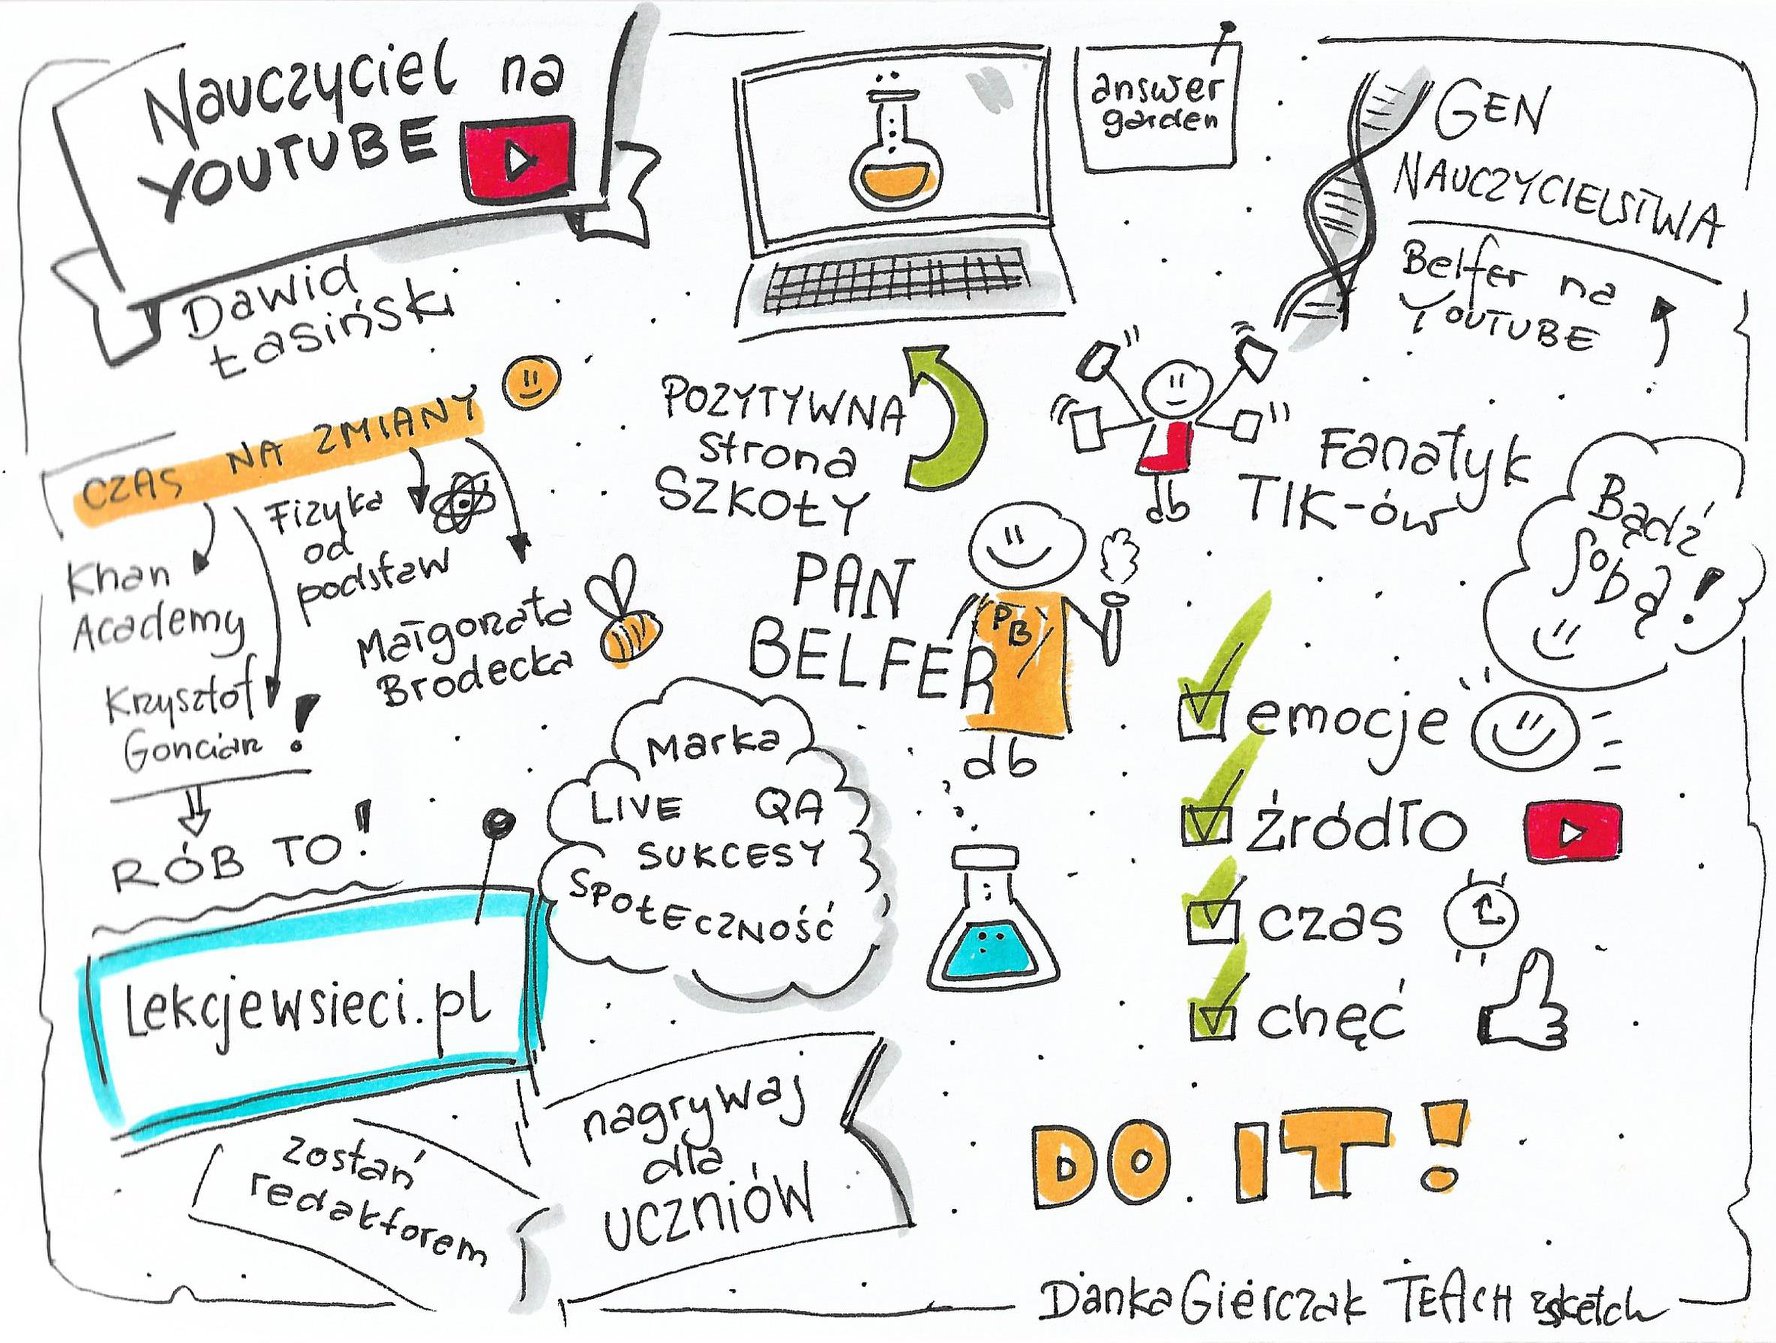 Nauczyciel na
YOUTUBE
Dawid
Łasiński
answer
garden
GEN
NAUCZYCIELSTWA
Belfer na
YOUTUBE
CZAS NA ZMIANY
Khan
Academy
Krzysztof
Gonciarz
!
Fizyka
od
podstaw
Małgorzata
Brodecka
RÓB TO!
POZYTYWNA
strona
SZKOŁY
Fanatyk
TIK-ów
Bądź
sobą!
PAN
BELFER
PB
Marka
LIVE QA
SUKCESY
SPOŁECZNOŚĆ
emocje
źródło
czas
chęć
Lekcjewsieci.pl
zostań
redaktorem
nagrywaj
dla
UCZNIÓW
DO IT!
Danka Gierczak TEACH zsketch